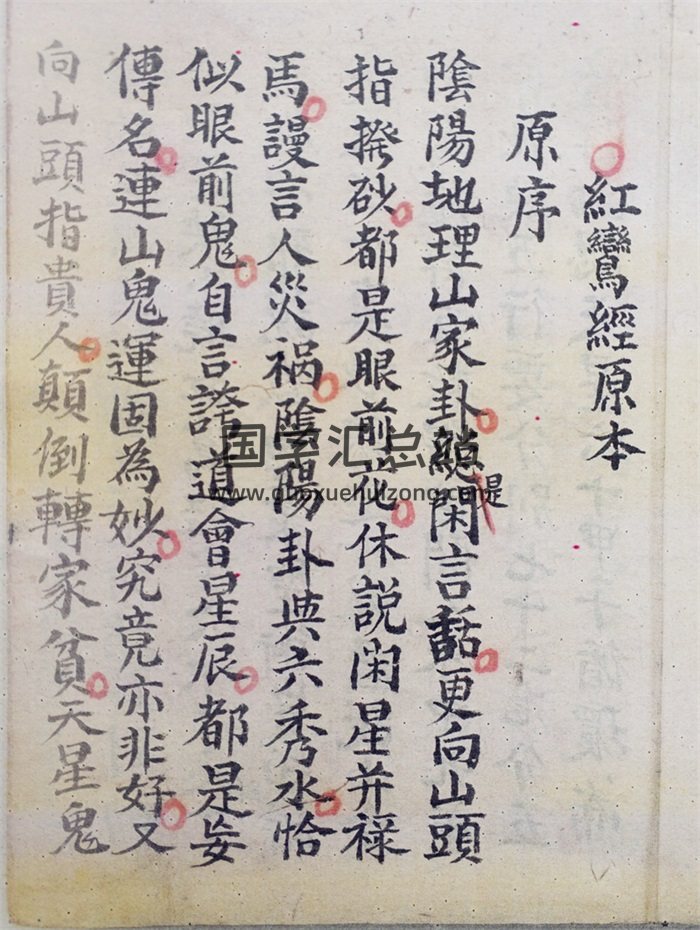 紅鸞經原本
原序
陰陽地理山家卦總是閑言話更向山頭
指撥砂都是眼前花休説閑星并祿
馬謾言人災祸陰陽卦與六秀水恰
似眼前鬼自言誇道會星辰都是妄
傳名連山鬼運固為妙究竟亦非好又
向山頭指貴人顛倒轉家貧天星鬼
国学汇总
www.guoxuehuizong.com